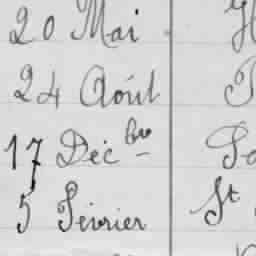 20 Mai
24 Août
17 Déc bre
5 Février St